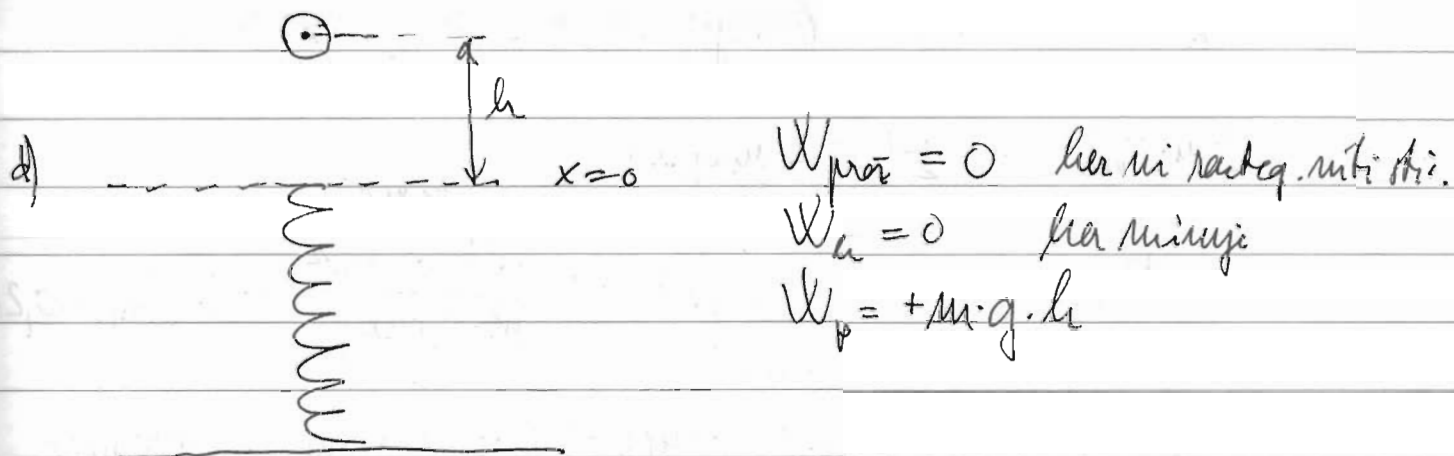 h
d) x=0 W_prož = 0 ker ni razteg. niti stis.
W_k = 0 ker miruje
W_p = +m·g·h